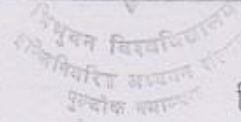 त्रिभुवन विश्वविद्यालय
इन्जिनियरिङ अध्ययन संस्थान
पुल्चोक क्याम्पस